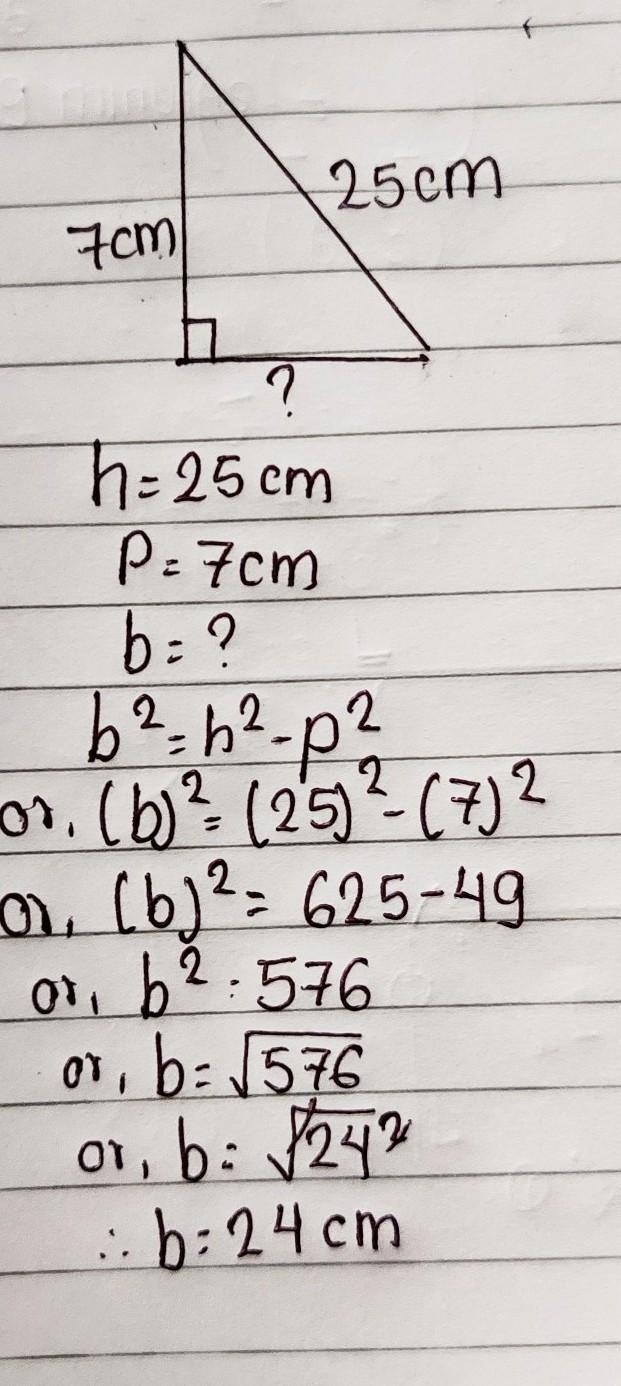 25cm
7cm
?
h=25cm
P=7cm
b=?
b²=h²-p²
or, (b)²=(25)²-(7)²
or, (b)²= 625-49
or, b²:576
or, b=√576
or, b=√24²
∴ b=24cm